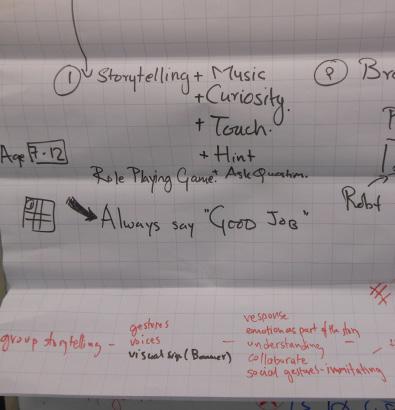 ① Storytelling + Music
+ Curiosity.
+ Touch.
+ Hint
② Bra
Age 7-12
Role Playing Game. + Ask Question.
Robt
Always say "GOOD JOB"
group storytelling -
gestures
voices
-
response
emotion as part of the
understanding -
collaborate
social gestures - immitating